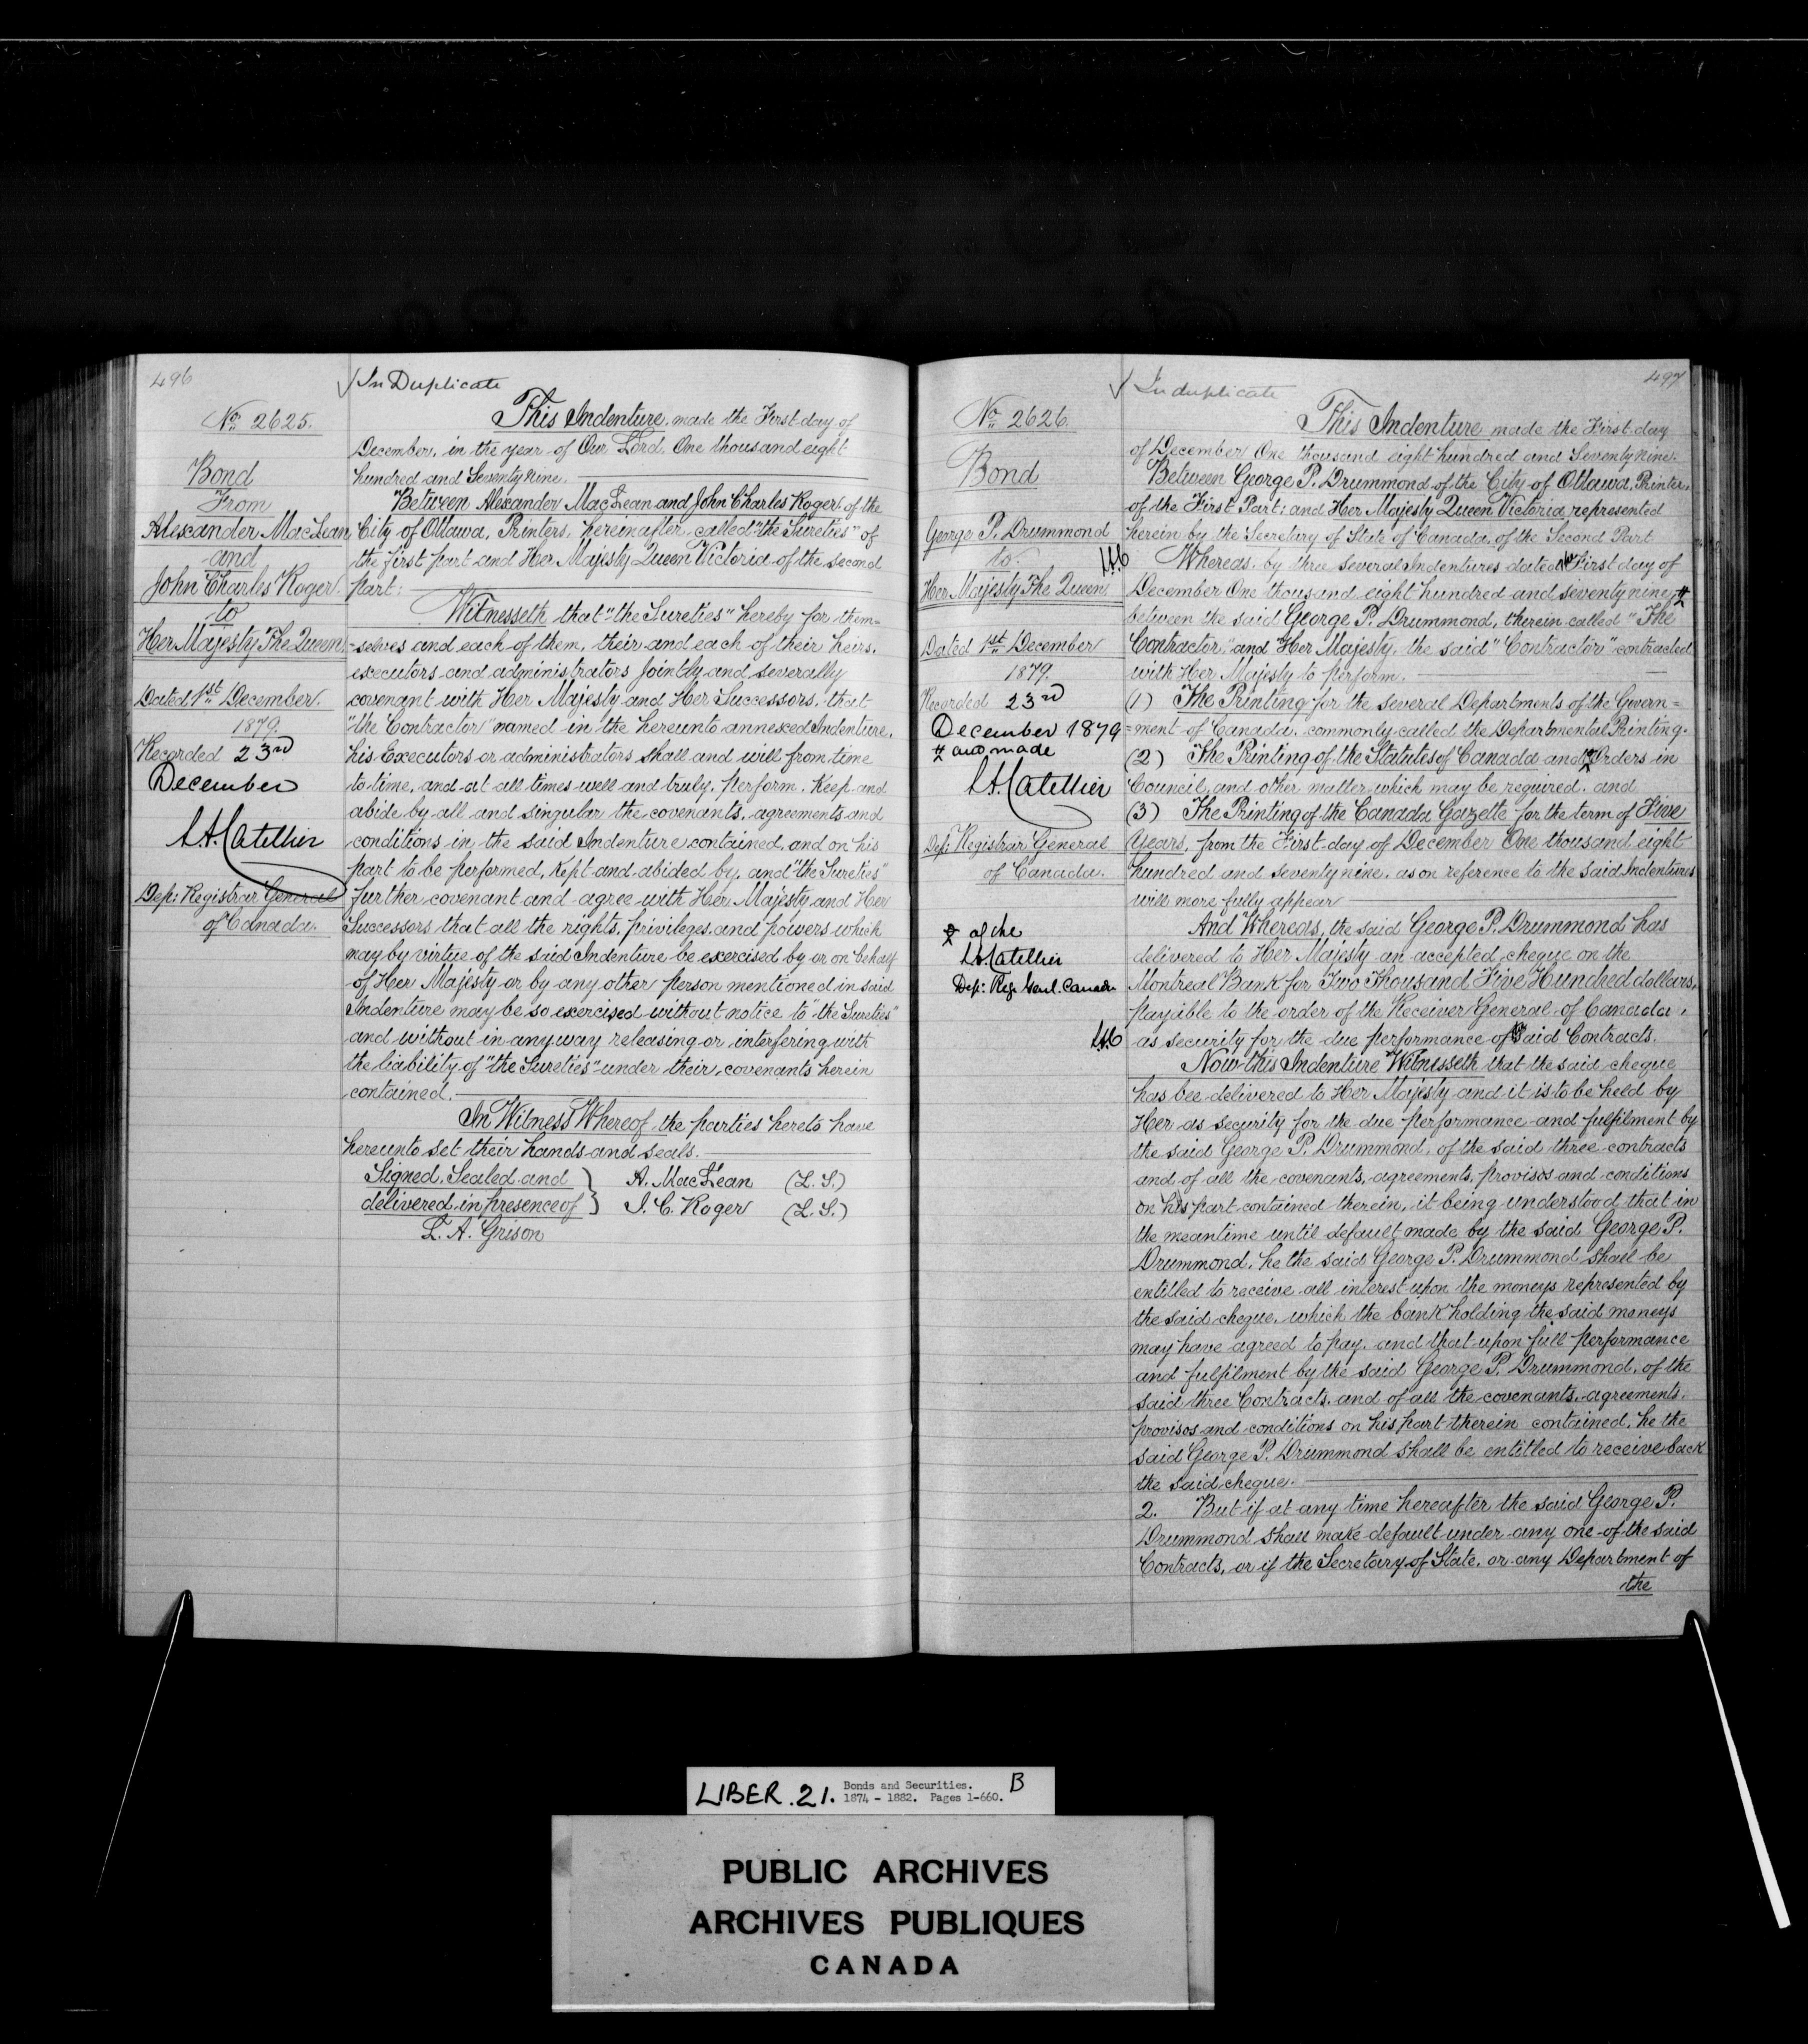 496
In Duplicate
No. 2625.
Bond
From
Alexander MacLean
and
John Charles Roger.
to
Her Majesty The Queen.
Dated 1st December.
1879.
Recorded 23rd
December
L. A. Catellier
Dep: Registrar General
of Canada.
This Indenture, made the First day of
December, in the year of Our Lord, One thousand eight
hundred and Seventy nine.
Between Alexander MacLean and John Charles Roger, of the
City of Ottawa, Printers, hereinafter called "the Sureties" of
the first part and Her Majesty Queen Victoria of the second
part:
Witnesseth that "the Sureties" hereby for them=
=selves and each of them, their and each of their heirs,
executors and administrators Jointly and severally
covenant with Her Majesty and Her Successors, that
"the Contractor" named in the hereunto annexed Indenture,
his Executors or administrators shall and will from time
to time, and at all times well and truly, perform, Keep and
abide by all and singular the covenants, agreements and
conditions in the said Indenture contained, and on his
part to be performed, Kept and abided by, and "the Sureties"
further covenant and agree with Her Majesty and Her
Successors that all the rights, privileges and powers which
may by virtue of the said Indenture be exercised by or on behalf
of Her Majesty or by any other person mentioned in said
Indenture may be so exercised without notice to "the Sureties"
and without in anyway releasing or interfering with
the liability of "the Sureties" under their covenants herein
contained.
In Witness Whereof the parties hereto have
hereunto set their hands and seals.
Signed, Sealed and } A. MacLean (L. S.)
delivered in presence of } J. C. Roger (L. S.)
L. A. Grison
497
In duplicate
No. 2626.
Bond
George P. Drummond
to
Her Majesty The Queen
Dated 1st December
1879.
Recorded 23rd
December 1879
# and made
L. A. Catellier
Dep: Registrar General
of Canada.
of the
L A Catellier
Dep: Reg. Genl. Canada
This Indenture made the First day
of December One thousand eight hundred and Seventy nine.
Between George P. Drummond of the City of Ottawa, Printer,
of the First Part; and Her Majesty Queen Victoria, represented
herein by the Secretary of State of Canada, of the Second Part
Whereas, by three several Indentures dated the First day of
December One thousand eight hundred and seventy nine, #
between the said George P. Drummond, therein called "The
Contractor," and Her Majesty, the said "Contractor" contracted
with Her Majesty to perform.
(1) The Printing for the several Departments of the Govern=
=ment of Canada, commonly called the Departmental Printing.
(2) The Printing of the Statutes of Canada and Orders in
Council, and other matter which may be required, and
(3) The Printing of the Canada Gazette for the term of Five
Years, from the First day of December One thousand eight
hundred and seventy nine, as on reference to the said Indentures
will more fully appear
And Whereas, the said George P. Drummond has
delivered to Her Majesty an accepted cheque on the
Montreal Bank for Two Thousand Five Hundred dollars,
payable to the order of the Receiver General of Canada,
as security for the due performance of said Contracts.
Now this Indenture Witnesseth that the said cheque
has bee delivered to Her Majesty and it is to be held by
Her as security for the due performance and fulfilment by
the said George P. Drummond, of the said three contracts
and of all the covenants, agreements, provisos and conditions
on his part contained therein, it being understood that in
the meantime until default made by the said George P.
Drummond, he the said George P. Drummond shall be
entitled to receive all interest upon the moneys represented by
the said cheque, which the bank holding the said moneys
may have agreed to pay, and that upon full performance
and fulfilment by the said George P. Drummond, of the
said three Contracts, and of all the covenants, agreements,
provisos and conditions on his part therein contained, he the
said George P. Drummond shall be entitled to receive back
the said cheque.
2. But if at any time hereafter the said George P.
Drummond shall make default under any one of the said
Contracts, or if the Secretary of State, or any Department of
the
LIBER. 21. Bonds and Securities. B
1874 - 1882. Pages 1-660.
PUBLIC ARCHIVES
ARCHIVES PUBLIQUES
CANADA